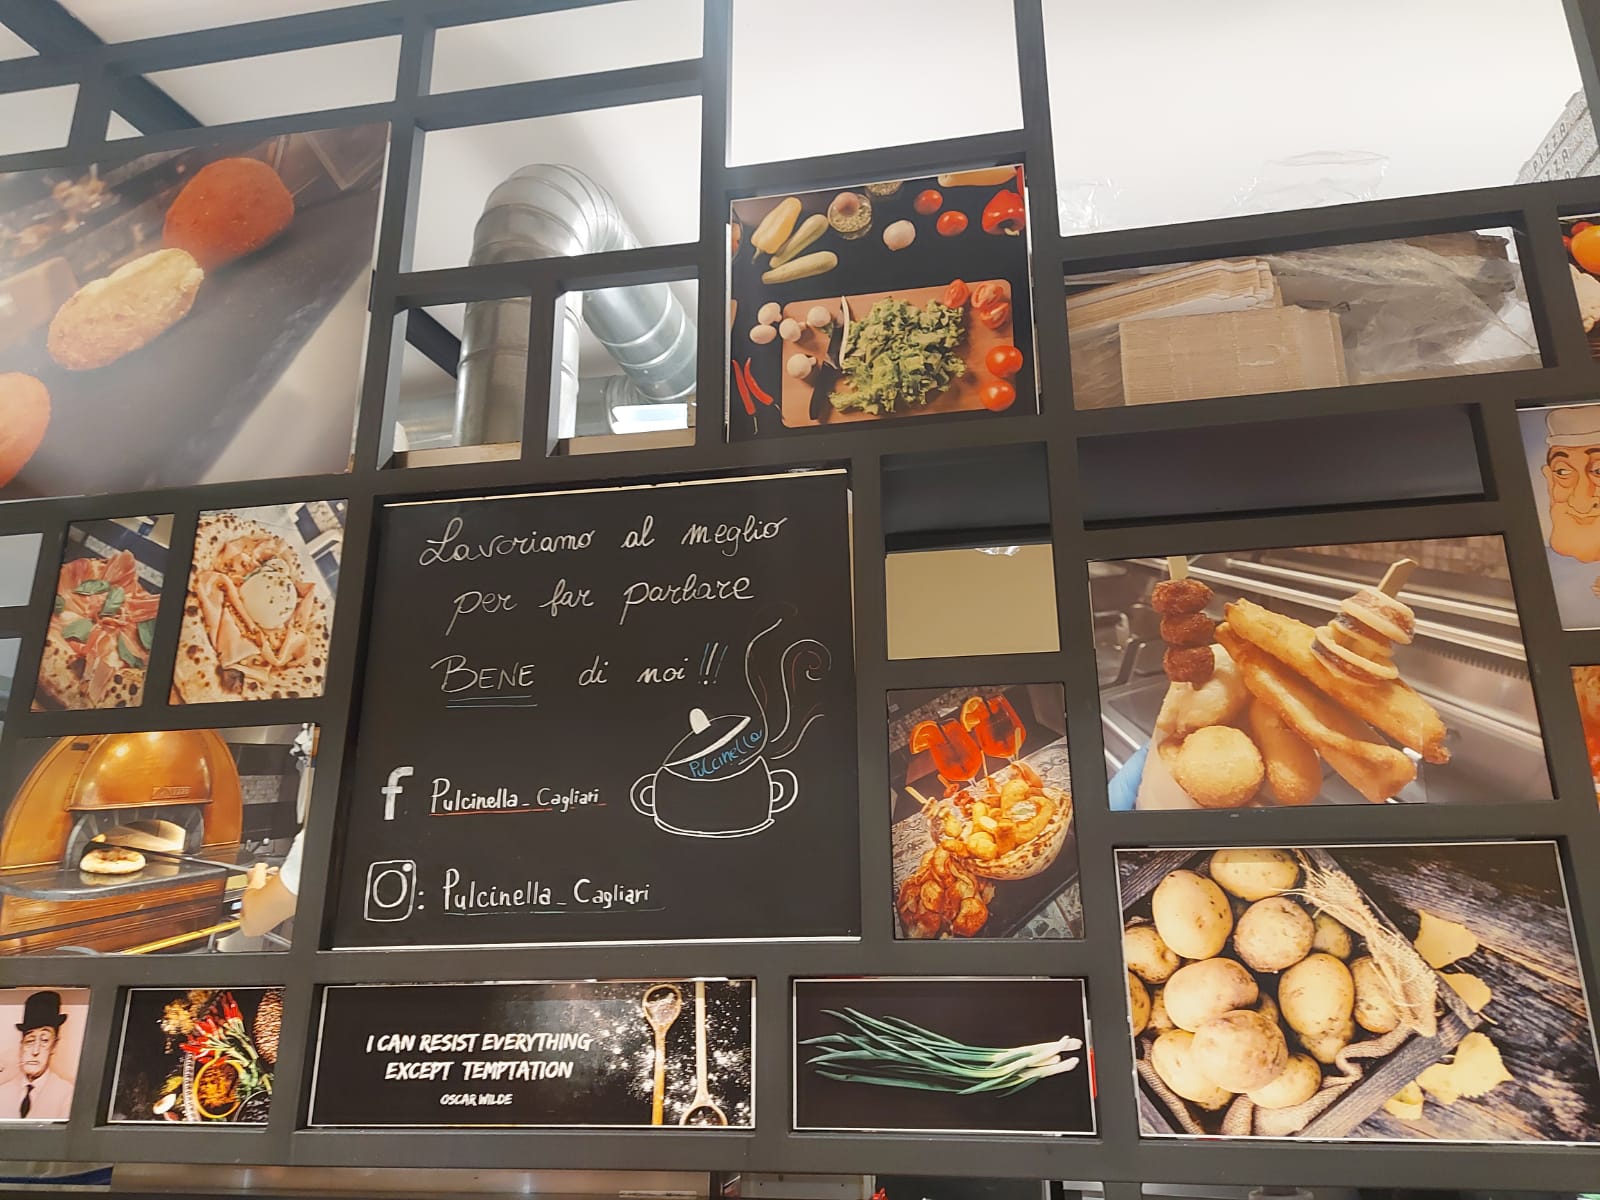 PIZZA
PIZZA
Lavoriamo al meglio
per far parlare
BENE di noi!!!
Pulcinella
f Pulcinella_Cagliari
: Pulcinella_Cagliari
I CAN RESIST EVERYTHING
EXCEPT TEMPTATION
OSCAR WILDE